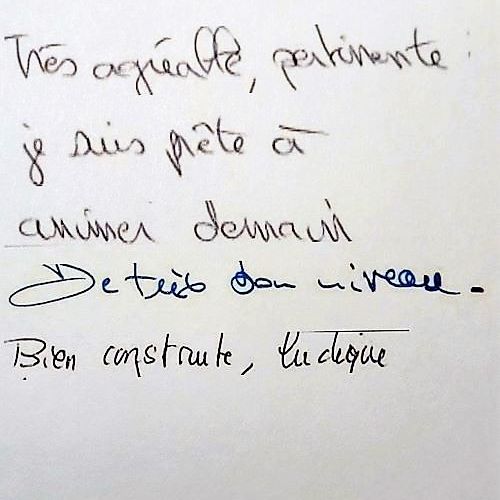 Très agréable, pertinente :
je suis prête à
animer demain
De très bon niveau.
Bien construite, ludique